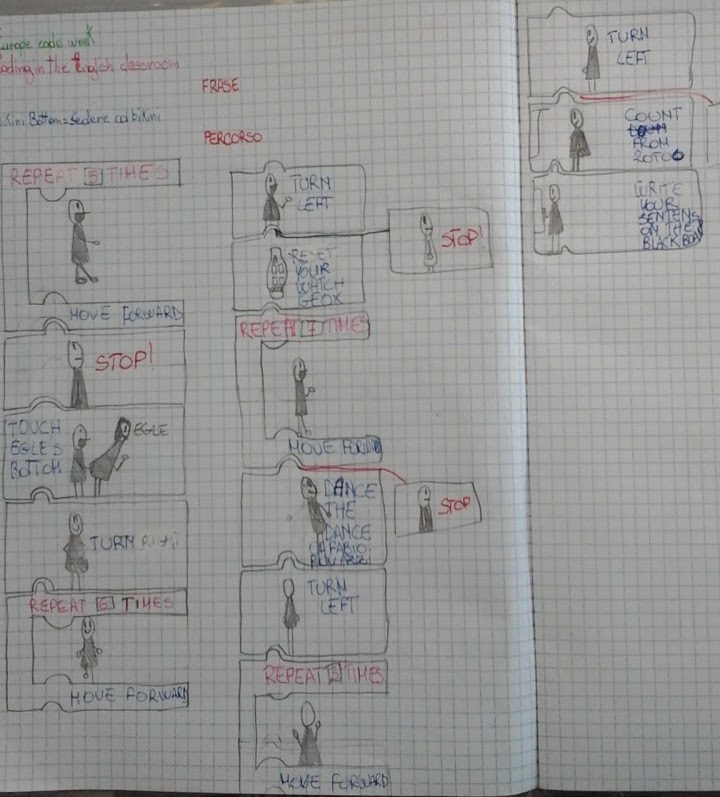 Europe code week
Coding in the English classroom
FRASE
Bottom = Sedere
PERCORSO
REPEAT 3 TIMES
MOVE FORWARD
STOP!
TOUCH
EGLE'S
BOTTOM
EGLE
TURN
REPEAT 6 TIMES
MOVE FORWARD
TURN
LEFT
STOP!
RESET
YOUR
WATCH
GEOX
REPEAT 7 TIMES
MOVE FORWARD
DANCE
THE
DANCE
DI FABIO
ROVAZZI
STOP
TURN
LEFT
REPEAT 3 TIMES
MOVE FORWARD
TURN
LEFT
COUNT
FROM
20 TO 0
WRITE
YOUR
SENTENS
ON THE
BLACKBOARD